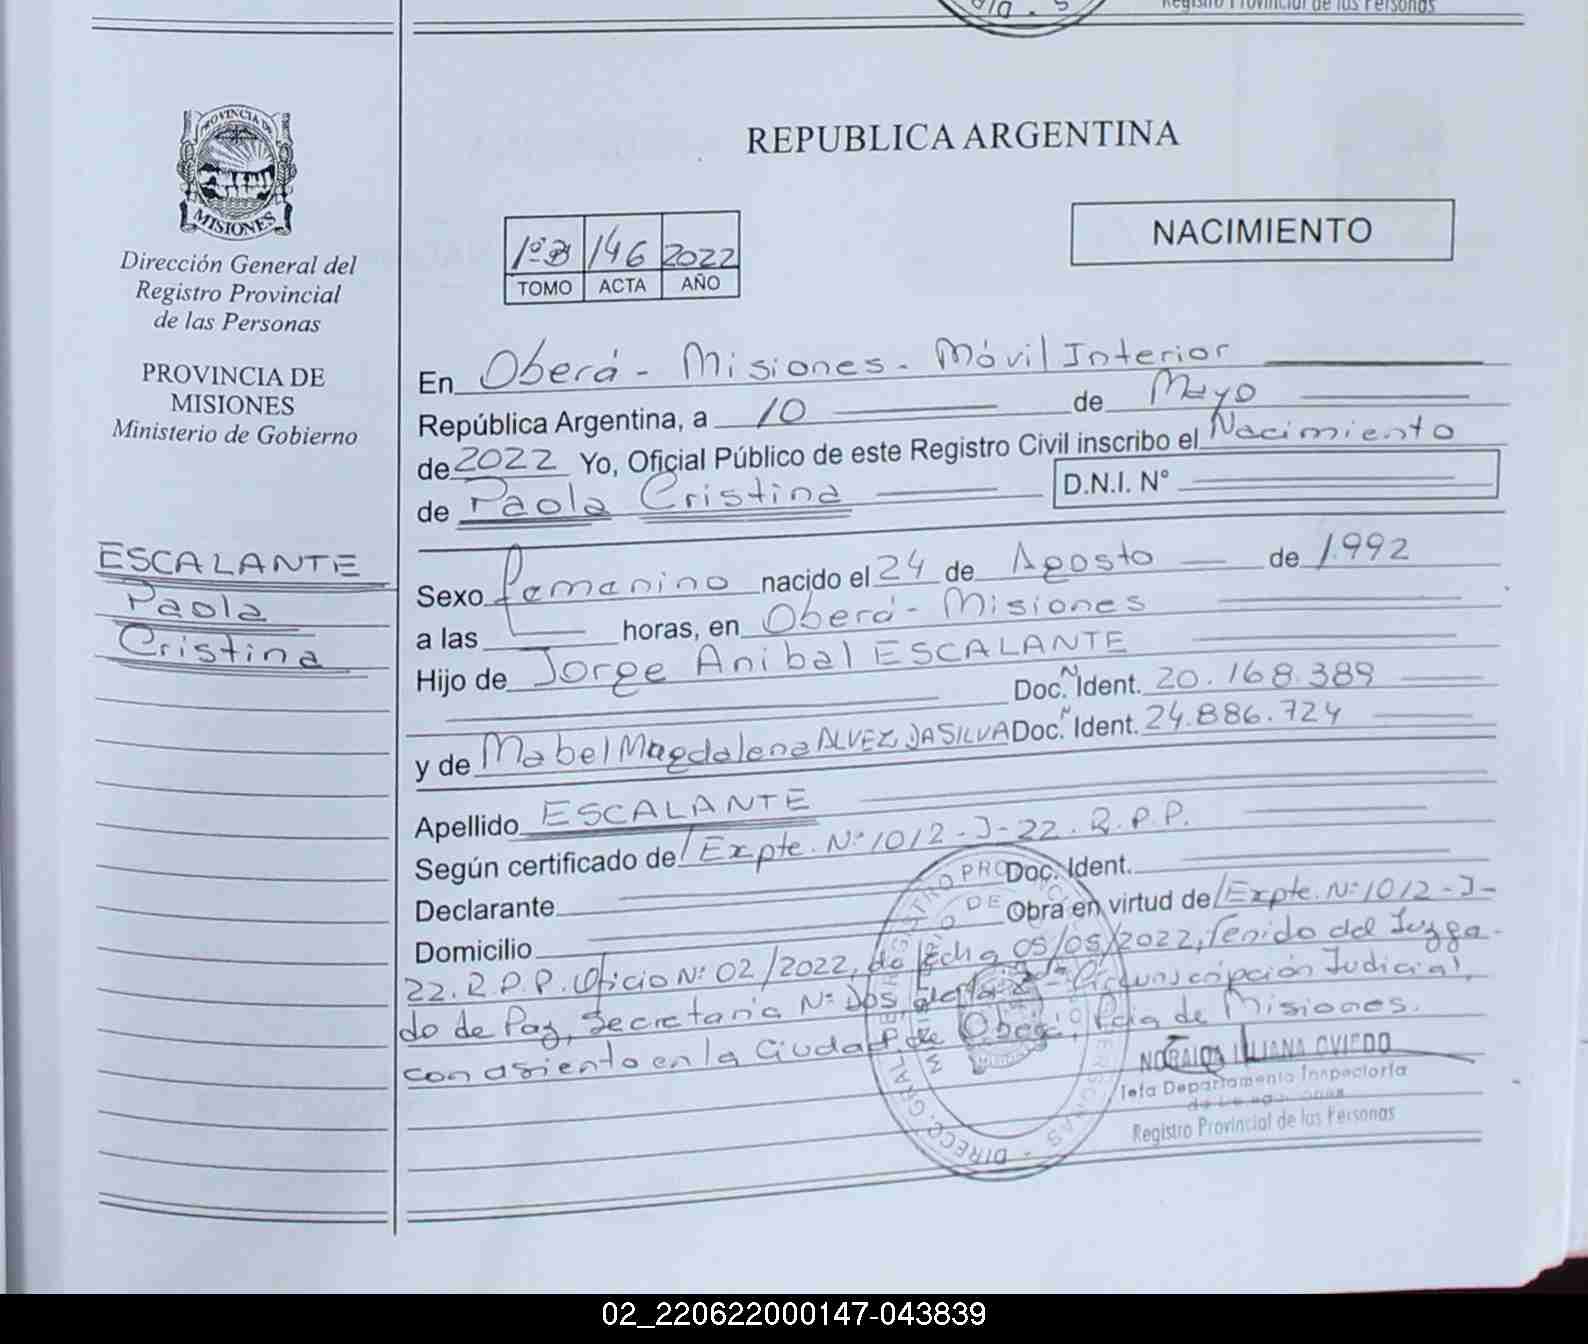 Registro Provincial de las Personas
PROVINCIA DE
MISIONES
Dirección General del
Registro Provincial
de las Personas
PROVINCIA DE
MISIONES
Ministerio de Gobierno
ESCALANTE
Paola
Cristina
REPUBLICA ARGENTINA
1º B 146 2022
TOMO ACTA AÑO
NACIMIENTO
En Oberá - Misiones - Móvil Interior
República Argentina, a 10 de Mayo
de 2022 Yo, Oficial Público de este Registro Civil inscribo el Nacimiento
de Paola Cristina D.N.I. N°
Sexo Femenino nacido el 24 de Agosto de 1.992
a las horas, en Oberá - Misiones
Hijo de Jorge Anibal ESCALANTE
Doc. Ident. 20.168.389
y de Mabel Magdalena ALVEZ DA SILVA Doc. Ident. 24.886.724
Apellido ESCALANTE
Según certificado de Expte. Nº 1012-J-22. R.P.P.
Declarante Doc. Ident.
Domicilio Obra en virtud de Expte. Nº 1012-J-
22. R.P.P. Oficio Nº 02/2022, de fecha 05/05/2022, venido del Juzga-
do de Paz, Secretaria Nº Dos, Circunscripción Judicial,
con asiento en la Ciudad de Oberá, Pcia de Misiones.
LILIANA OVIEDO
Jefa Departamento Inspectoría
Registro Provincial de las Personas
02_220622000147-043839